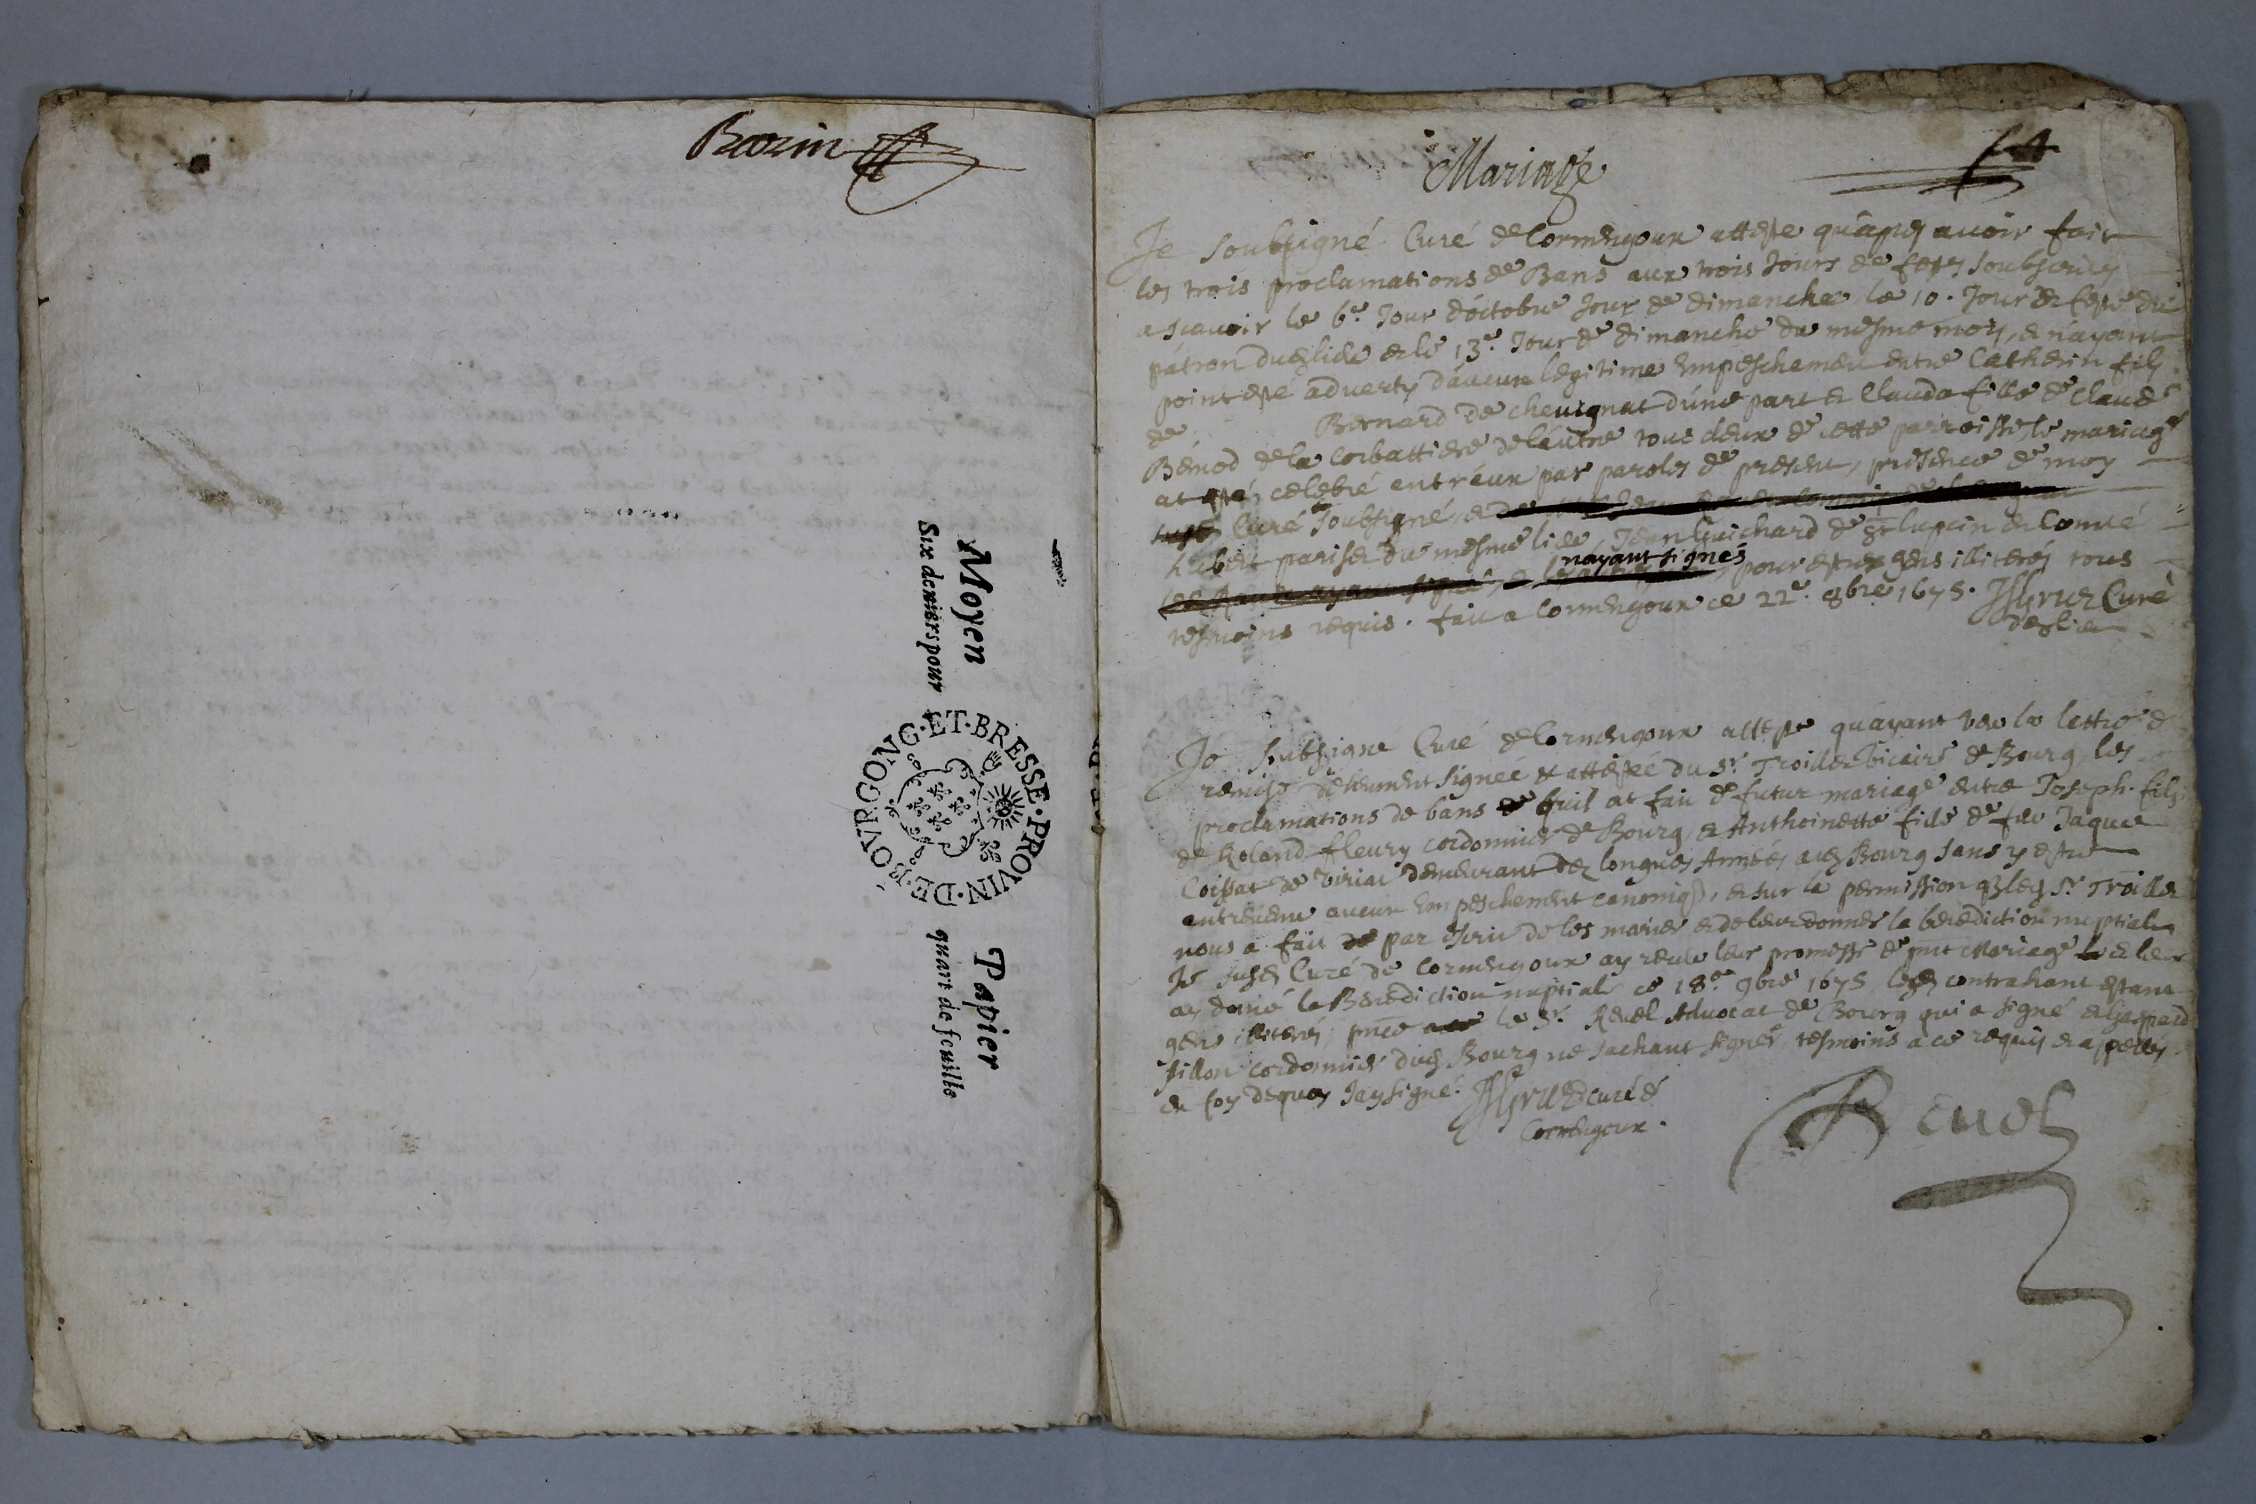 Bazin
Moyen Papier
Six deniers pour quart de feuille
DE·BOVRGONG·ET·BRESSE·PROVIN·
Mariage
Je soubsigné Curé de Cormengoux atteste qu'apres avoir fait
les trois proclamations de Bans aux trois Jours de festes
a scavoir le 6e Jour d'octobre Jour de dimanche le 10. Jour et feste du
patron dudlieu et le 13e Jour de dimanche du mesme mois, et n'ayant
point esté adverty d'aucun legitime Empeschement entre Catherin fils
de Bernard de chevignat d'une part et Clauda fille de Claude
Benod de la Corbattiere de l'autre tous deux de cette parroisse, le mariage
at esté celebré entr'eux par paroles de present, presence de moy
Curé soubsigné, et
hubert pariset du mesme lieu Jean Guichard de St lupcin et
n'ayant signés pour estre gens illiterés tous
tesmoins requis. fait a Cormengoux ce 22e. 8bre 1675. Curé
dudlieu
Je subsigne Curé de Cormengoux atteste qu'ayant veu la lettre de
remise deuement signée et attestée du Sr. Troillet vicaire de Bourg, les
proclamations de bans qu'il at fait de futur mariage entre Joseph fils
de Roland fleury cordonnier de Bourg et Anthoinette fille de feu Jaque
Coissat de viriat demeurant dez longues Années audt Bourg sans y estre
entrevenu aucun Empeschement canonique, et sur la permission q. led. Sr Troillet
nous a fait par escrit de les marier et de leur donner la benediction nuptiale
Je susd. Curé de Cormengoux ay receu leur promesse de mariage et leur
ay donné la Benediction nuptiale ce 18e 9bre 1675 lesd. contrahant estant
gens illiterés, pnce le Sr. Revel Advocat de Bourg qui a signé et gaspard
pillon cordonnier dud. Bourg ne sachant signer tesmoins a ce requis et appellés.
en foy dequoy Jay signé. curé de
Cormengoux.
Revel